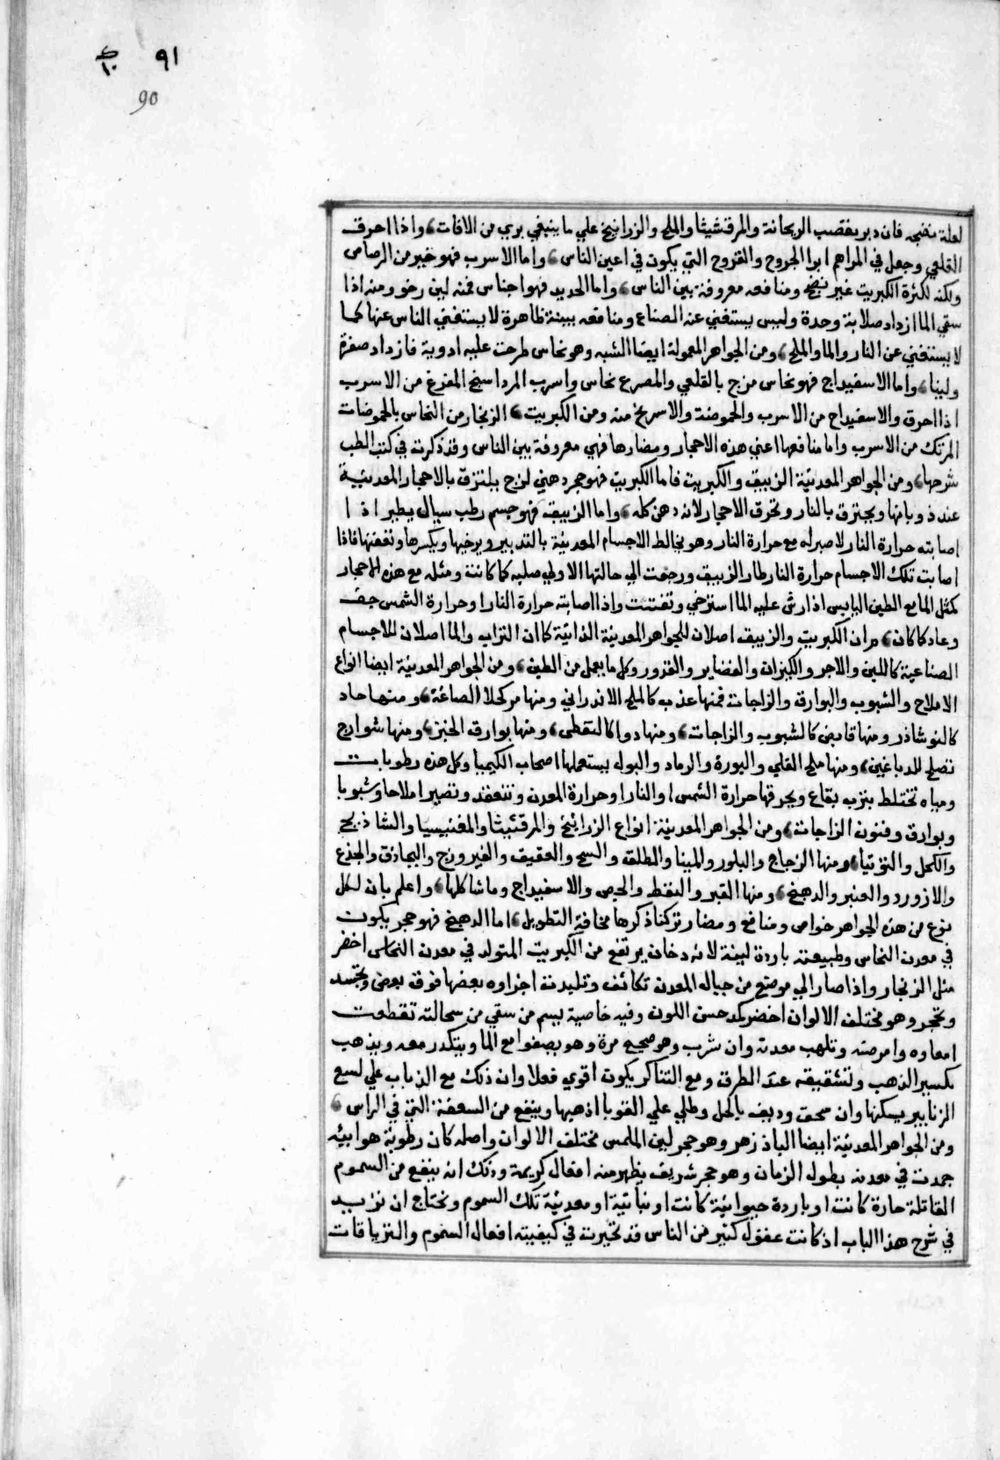 ٩١
90
لعلة نضجه فان دبر بقصب الريحانة والمرقشيثا والملح والزرانيخ على ما ينبغي بري من الافات، واذا احرق
القلعي وجعل في المراهم ابرا الجروح والقروح التي يكون في اعين الناس، واما الاسرب فهو خبر من الرصاص
ولكنه لكثرة الكبريت غير نضج ومنافعه معروفة بين الناس، واما الحديد فهو اجناس فمنه لين رخو ومنه اذا
سقي الما ازداد صلابة وحدة وليس يستغني عنه الصناع ومنافعه بينة ظاهرة لا يستغني الناس عنها كما
لا يستغني عن النار والما والملح، ومن الجواهر المعمولة ايضا الشبه وهو نحاس طرحت عليه ادوية فازداد صفرة
ولينا، واما الاسفيداج فهو نحاس مزج بالقلعي والمصرع نحاس واسرب المرداسنج المفرغ من الاسرب
اذا احرق والاسفيداج من الاسرب والحموضة والاسرنج منه ومن الكبريت، الزنجار من النحاس بالحموضات
المرتك من الاسرب واما منافعها اعني هذه الاحجار ومضارها فهي معروفة بين الناس وقد ذكرت في كتب الطب
شرحها، ومن الجواهر المعدنية الزيبق والكبريت فاما الكبريت فهو حجر دهني لزج يلتزق بالاحجار المعدنية
عند ذوبانها ويحترق بالنار وتحرق الاحجار لانه دهن كله، واما الزيبق فهو جسم رطب سيال يطير اذا
اصابته حرارة النار لا صبر له مع حرارة النار وهو يخالط الاجسام المعدنية بالتدبير ويرخيها ويكسرها وتنغضها فاذا
اصابت تلك الاجسام حرارة النار طار الزيبق ورجعت الي حالتها الاولي صلبه كما كانت ومثله مع هذه الاحجار
كمثل المامع الطين اليابس اذا رش عليه الما استرخي وتفتت واذا اصابته حرارة النار او حرارة الشمس جف
وعاد كما كان، مر ان الكبريت والزيبق اصلان للجواهر المعدنية الذائبة كما ان التراب والما اصلان للاجسام
الصناعية كاللبن والاجر والكيزان والغضاير والقدور وكل ما يعمل من الطين، ومن الجواهر المعدنية ايضا انواع
الاملاح والشبوب والبوارق والزاجات فمنها عذبه كالملح الاندراني ومنها مر كحلا الصاغة، ومنها حاد
كالنوشاذر ومنها قابض كالشبوب والزاجات، ومنها دوا كالنفطي، ومنها بوارق الخبز، ومنها شوارج
تصلح للدباغين، ومنها ملح القلي والبورة والرماد والبول يستعملها اصحاب الكيميا وكل هذه رطوبات
ومياه تختلط بتربه بقاع ويحرقها حرارة الشمس او النار او حرارة المعدن وتنعقد وتصير املاحا وشبوبا
وبوارق وفنون الزاجات، ومن الجواهر المعدنية انواع الزرانيخ والمرقشيثا والمغنيسيا والشاذنج
والكحل والتوتيا، ومنها الزجاج والبلور والمينا والطلق والسبح والعقيق والفيروزج والبجاذق والجزع
والازورد والعنبر والدهنج، ومنها القير والنفط والجص والاسفيداج وما شاكلها، واعلم بان لكل
نوع من هذه الجواهر خواص ومنافع ومضار تركنا ذكرها مخافة التطويل، اما الدهنج فهو حجر يكون
في معدن النحاس وطبيعته باردة لينة لانه دخان يرتفع من الكبريت المتولد في معدن النحاس اخضر
مثل الزنجار واذا صار الي موضع من جباله المعدن تكاثف وتلبدت اجزاوه بعضها فوق بعض وتجسد
وتحجر وهو مختلف الالوان اخضر كمد حسن اللون وفيه خاصية بسم من سقي من سحالته تقطعت
امعاوه وامرضته وتلهب معدته وان شرب وهو صحيح مرة وهو يصفو مع الما ويتكدر معه ويذهب
بكسير الذهب وتشقيقه عند الطرق ومع التناكر يكون اقوي فعلا وان ذلك مع الذباب علي لسع
الزنابير يسكنها وان سحق وديف بالخل وطلي علي القوبا اذهبها وينفع من السعفة التي في الراس،
ومن الجواهر المعدنية ايضا الباذزهر وهو حجر لين الملمس مختلف الالوان واصله كان رطوبة هوابيه
جمدت في معدنه بطول الزمان وهو حجر شريف يظهر منه افعال كريمة وذلك انه ينفع من السموم
القاتلة حارة كانت او باردة حيوانية كانت او نباتية او معدنية تلك السموم ونحتاج ان نزيد
في شرح هذا الباب اذ كانت عقول كثير من الناس قد تحيرت في كيفيته افعال السموم والترياقات